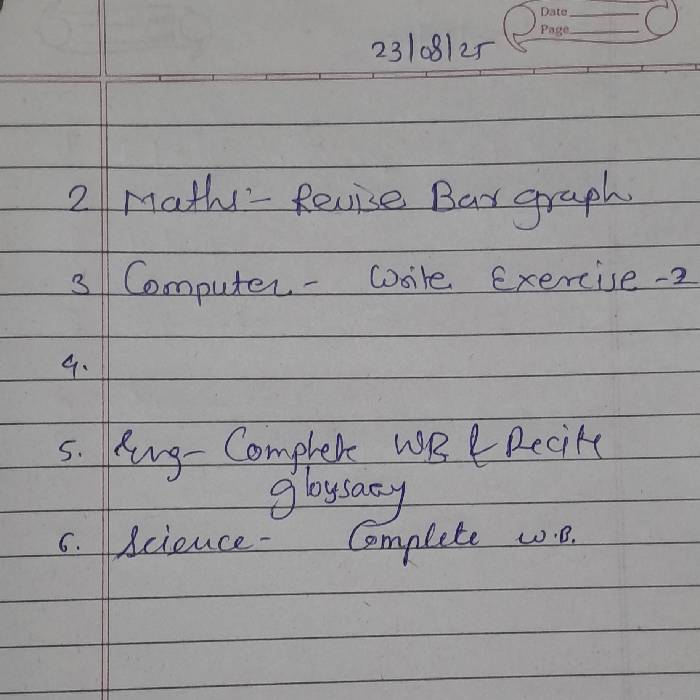 Date
Page
23/08/25
2 Maths:- Revise Bar graph
3 Computer - Write Exercise - 2
4.
5. Eng- Complete WB & Recite
gloysary
6. Science - Complete W.B.